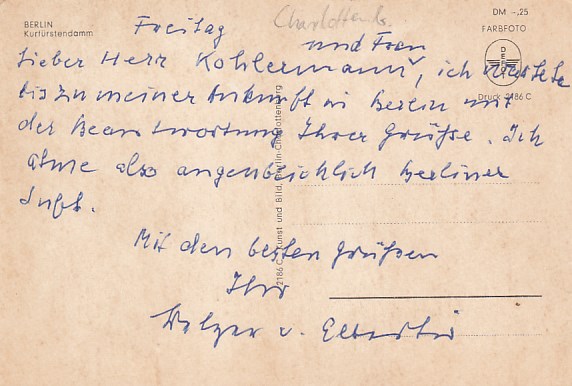 BERLIN
Kurfürstendamm
DM -,25
FARBFOTO
Druck 2186 C
2186 C Kunst und Bild, Berlin-Charlottenburg
Freitag
und Frau
Lieber Herr Kohlermann, ich wartete
bis zu meiner Ankunft in Berlin mit
der Beantwortung Ihrer Grüße. Ich
atme also augenblicklich Berliner
Luft.
Mit den besten Grüßen
Ihr
v.